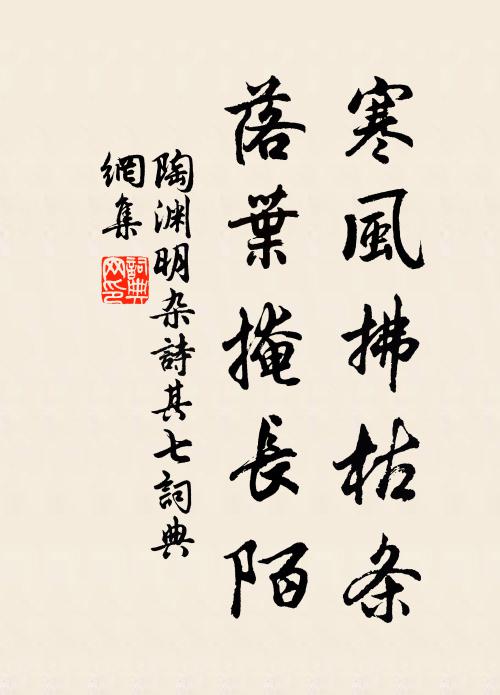 寒風拂枯条
落葉掩長陌
陶渊明杂詩其七詞典
網集
詞典
网印